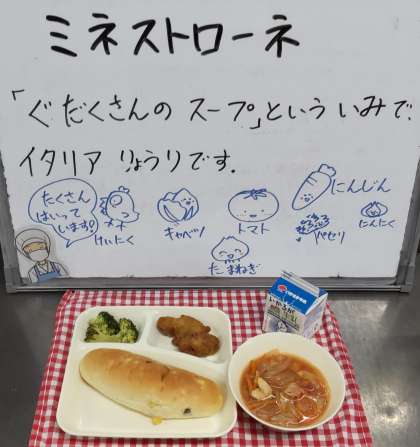 ミネストローネ
「ぐだくさんの スープ」という いみで、
イタリア りょうりです.
たくさん
はいって
います!
けいにく
キャベツ
トマト
にんじん
パセリ
にんにく
たまねぎ